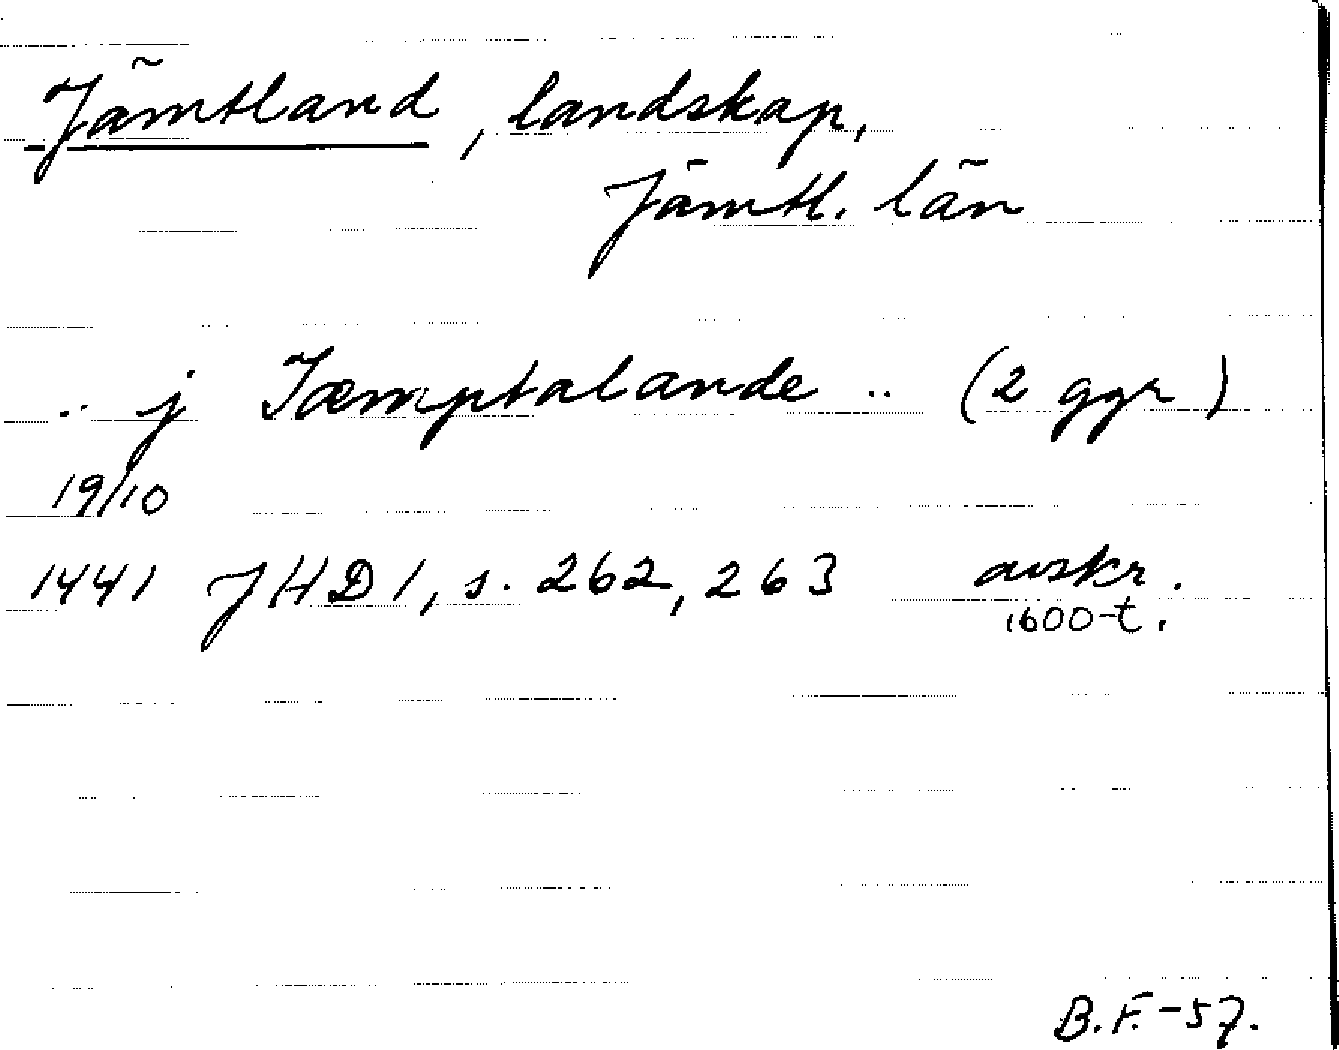 Jämtland, landskap,
Jämtl. län
.. j Jæmptalande .. (2 ggr)
19/10
1441 JHD1, s. 262, 263 avskr.
1600-t.
B.F.-57.